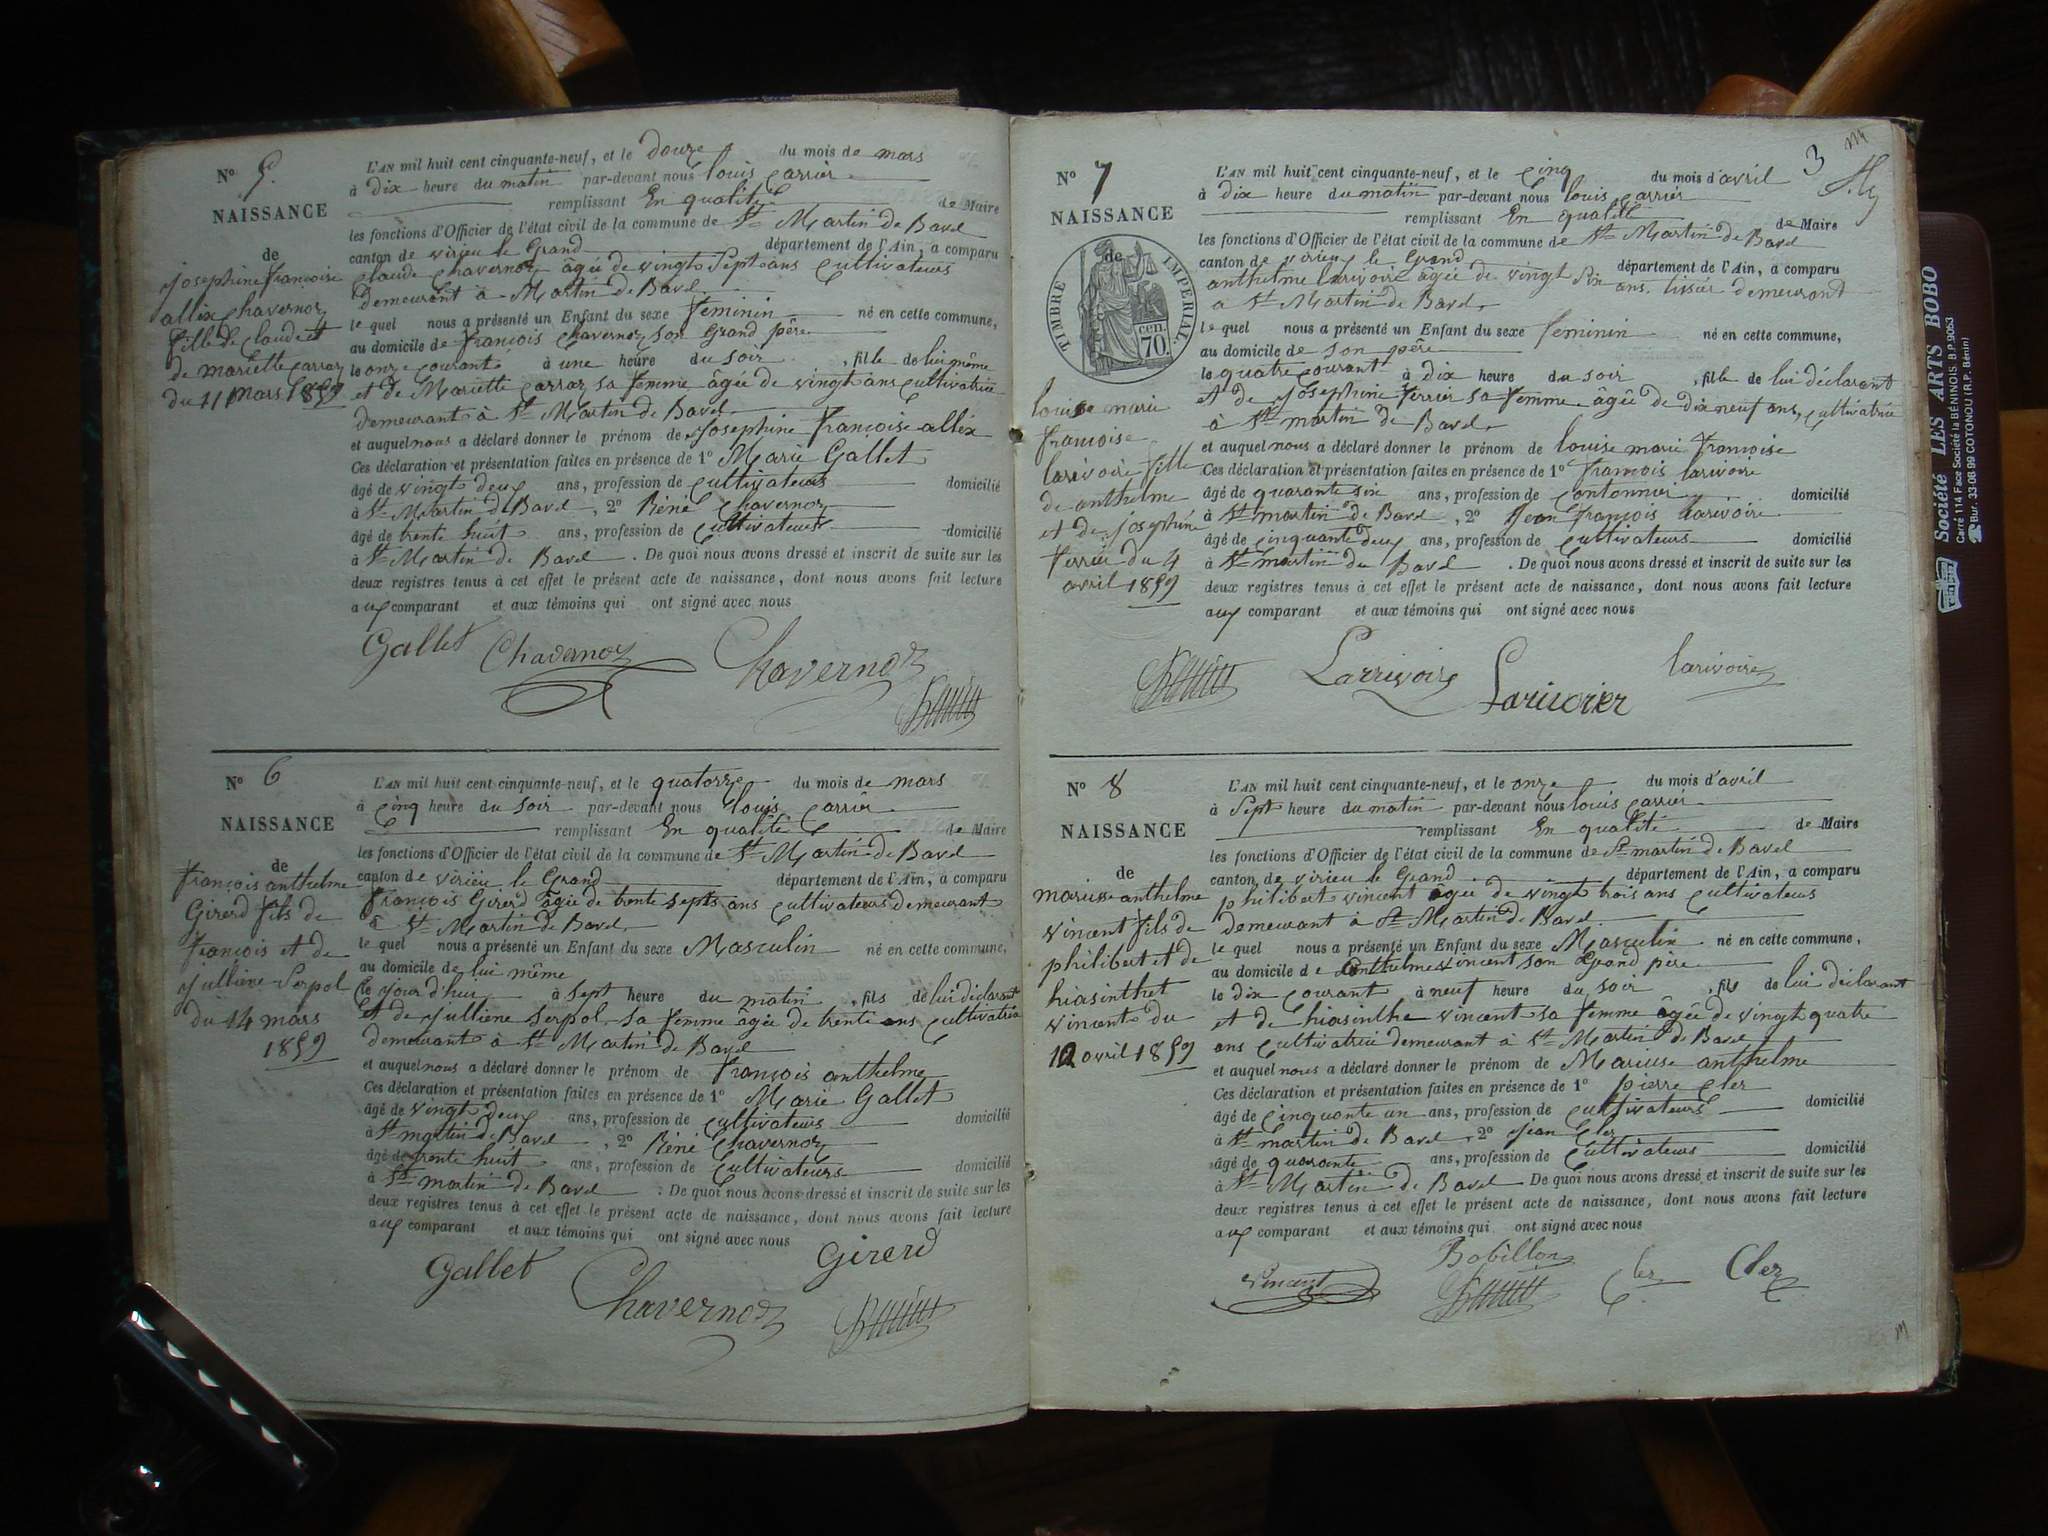 N° 5.
NAISSANCE
de
josephine françoise
allix chavernoz
fille de claude et
de mariette carraz
du 11 mars 1859
L'AN mil huit cent cinquante-neuf, et le douze du mois de mars
à dix heure du matin par-devant nous louis carrier
remplissant En qualité de Maire
les fonctions d'Officier de l'état civil de la commune de St Martin de Bavel
canton de virieu le Grand département de l'Ain, a comparu
Claude Chavernoz âgée de vingt Sept ans Cultivateurs
Demeurant à Martin de Bavel
le quel nous a présenté un Enfant du sexe feminin né en cette commune,
au domicile de françois Chavernoz son Grand père
le onze courant à une heure du soir, fille de lui même
et de Mariette Carraz sa femme âgée de vingt ans Cultivatrice
demeurant à St Martin de Bavel
et auquel nous a déclaré donner le prénom de Josephine françoise allix
Ces déclaration et présentation faites en présence de 1° Marie Gallet
âgé de vingt deux ans, profession de Cultivateurs domicilié
à St Martin de Bavel, 2° Réné Chavernoz
âgé de trente huit ans, profession de Cultivateurs domicilié
à St Martin de Bavel. De quoi nous avons dressé et inscrit de suite sur les
deux registres tenus à cet effet le présent acte de naissance, dont nous avons fait lecture
aux comparant et aux témoins qui ont signé avec nous
Gallet Chavernoz Chavernoz
N° 6
NAISSANCE
de
françois anthelme
Girerd fils de
françois et de
Jullienne Serpol
du 14 mars
1859
L'AN mil huit cent cinquante-neuf, et le quatorze du mois de mars
à Cinq heure du soir par-devant nous louis carrier
remplissant En qualité de Maire
les fonctions d'Officier de l'état civil de la commune de St Martin de Bavel
canton de virieu le Grand département de l'Ain, a comparu
françois Girerd âgée de trente Septs ans Cultivateurs demeurant
à St Martin de Bavel
le quel nous a présenté un Enfant du sexe Masculin né en cette commune,
au domicile de lui même
le jour d'hui à sept heure du matin, fils de lui déclarant
et de Julliene Serpol sa femme âgée de trente ans Cultivatrice
demeurant à St Martin de Bavel
et auquel nous a déclaré donner le prénom de françois anthelme
Ces déclaration et présentation faites en présence de 1° Marie Gallet
âgé de vingt deux ans, profession de Cultivateurs domicilié
à St martin de Bavel, 2° Réné Chavernoz
âgé de trente huit ans, profession de Cultivateurs domicilié
à St martin de Bavel. De quoi nous avons dressé et inscrit de suite sur les
deux registres tenus à cet effet le présent acte de naissance, dont nous avons fait lecture
aux comparant et aux témoins qui ont signé avec nous
Gallet Chavernoz Girerd
3
N° 7
NAISSANCE
de
TIMBRE IMPERIAL
cen.
70.
louise marie
françoise
larivoire fille
de anthelme
et de josephine
ferrier du 4
avril 1859
L'AN mil huit cent cinquante-neuf, et le Cinq du mois d'avril
à dix heure du matin par-devant nous louis carrier
remplissant En qualité de Maire
les fonctions d'Officier de l'état civil de la commune de St Martin de Bavel
canton de virieu le Grand département de l'Ain, a comparu
anthelme larivoire âgée de vingt Six ans tissier demeurant
a St Martin de Bavel
le quel nous a présenté un Enfant du sexe feminin né en cette commune,
au domicile de son père
le quatre courant à dix heure du soir, fille de lui déclarant
et de Josephine ferrier sa femme âgée de dix neuf ans, Cultivatrice
à St martin de Bavel
et auquel nous a déclaré donner le prénom de louise marie françoise
Ces déclaration et présentation faites en présence de 1° francois larivoire
âgé de quarante six ans, profession de Contonnier domicilié
à St martin de Bavel, 2° Jean françois larivoire
âgé de cinquante deux ans, profession de Cultivateurs domicilié
à St martin de Bavel. De quoi nous avons dressé et inscrit de suite sur les
deux registres tenus à cet effet le présent acte de naissance, dont nous avons fait lecture
aux comparant et aux témoins qui ont signé avec nous
Larrivoire Larivoirer larivoire
N° 8
NAISSANCE
de
mariuse anthelme
vincent fils de
philibert et de
hiasinthet
vincent du
10 avril 1859
L'AN mil huit cent cinquante-neuf, et le onze du mois d'avril
à Sept heure du matin par-devant nous louis carrier
remplissant En qualité de Maire
les fonctions d'Officier de l'état civil de la commune de St martin de Bavel
canton de virieu le Grand département de l'Ain, a comparu
philibert vincent âgée de vingt trois ans Cultivateurs
demeurant à St Martin de Bavel
le quel nous a présenté un Enfant du sexe Masculin né en cette commune,
au domicile de Anthelme vincent son Grand père
le dix courant à neuf heure du soir, fils de lui déclarant
et de hiasinthe vincent sa femme âgée de vingt quatre
ans Cultivatrice demeurant à St Martin de Bavel
et auquel nous a déclaré donner le prénom de Mariuse anthelme
Ces déclaration et présentation faites en présence de 1° pierre Cler
âgé de Cinquante un ans, profession de Cultivateurs domicilié
à St martin de Bavel, 2° Jean Cler
âgé de quarante ans, profession de Cultivateurs domicilié
à St Martin de Bavel De quoi nous avons dressé et inscrit de suite sur les
deux registres tenus à cet effet le présent acte de naissance, dont nous avons fait lecture
aux comparant et aux témoins qui ont signé avec nous
Vincent Bobillon Cler Cler
Société LES ARTS BOBO
Carré 1114 Face Société la BÉNINOIS. B.P. 9063
Bur. 33-06 99 COTONOU (R.P. Bénin)